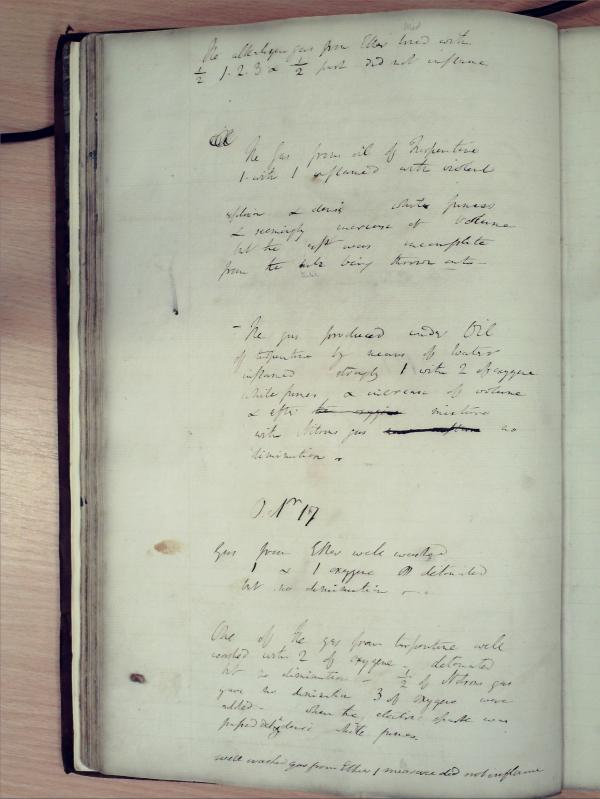 The gas from Ether tried with
1/2 1. 2. 3 & 1/2 part did not inflame
The gas from oil of Turpentine
1 with 1 inflamed with violent
& dense white fumes
& seemingly increase of volume
but the expt was incomplete
from the tube being thrown out —
— The gas produced under Oil
of turpentine by means of water
inflamed strongly 1 with 2 of oxygene
white fumes & increase of volume
& after the oxygene mixture
with Nitrous gas no
diminution.
17
Gas from Ether well washed
1 & 1 oxygene detonated
but no diminution —
One of the gas from turpentine well
washed with 2 of oxygene, detonated
but no diminution — 1/2 of Nitrous gas
gave no diminution 3 of oxygene were
added — when the electric spark was
passed dense white fumes.
well washed gas from Ether 1 measure did not inflame